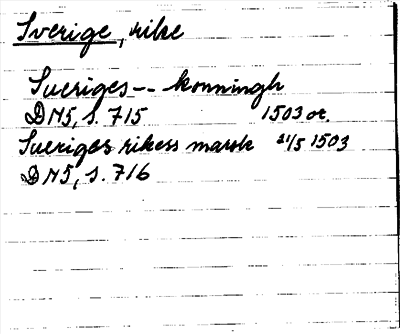 Sverige, rike
Sueriges-- konningh
DN5, s. 715 1503 ot.
Sueriges rikess marsk 21/5 1503
DN5, s. 716